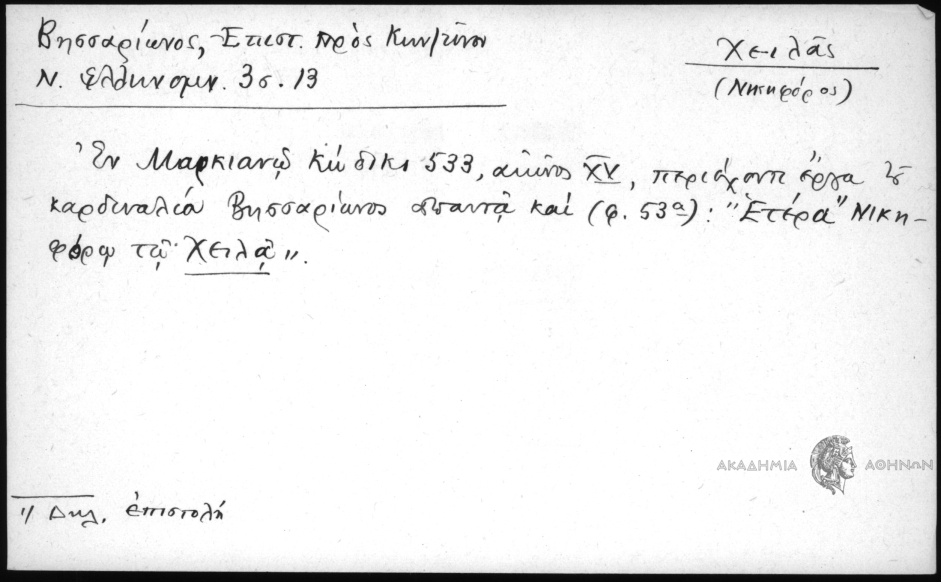 Βησσαρίωνος, Ἐπιστ. πρὸς Κων/τῖνον
Ν. Ἑλληνομν. 3 σ. 13
Χειλᾶς
(Νικηφόρος)
Ἐν Μαρκιανῷ κώδικι 533, αἰῶνος XV, περιέχοντι ἔργα τοῦ
καρδιναλίου Βησσαρίωνος ἀπαντᾷ καὶ (φ. 53α): "Ἑτέρα" Νικη-
φόρῳ τῷ Χειλᾷ".
1/ Δηλ. ἐπιστολή
ΑΚΑΔΗΜΙΑ ΑΘΗΝΩΝ